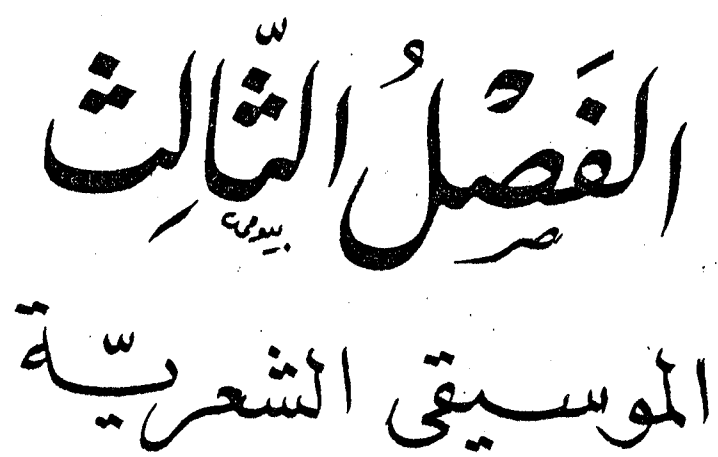 الفَصْلُ الثّالِث
الموسيقى الشعريّة